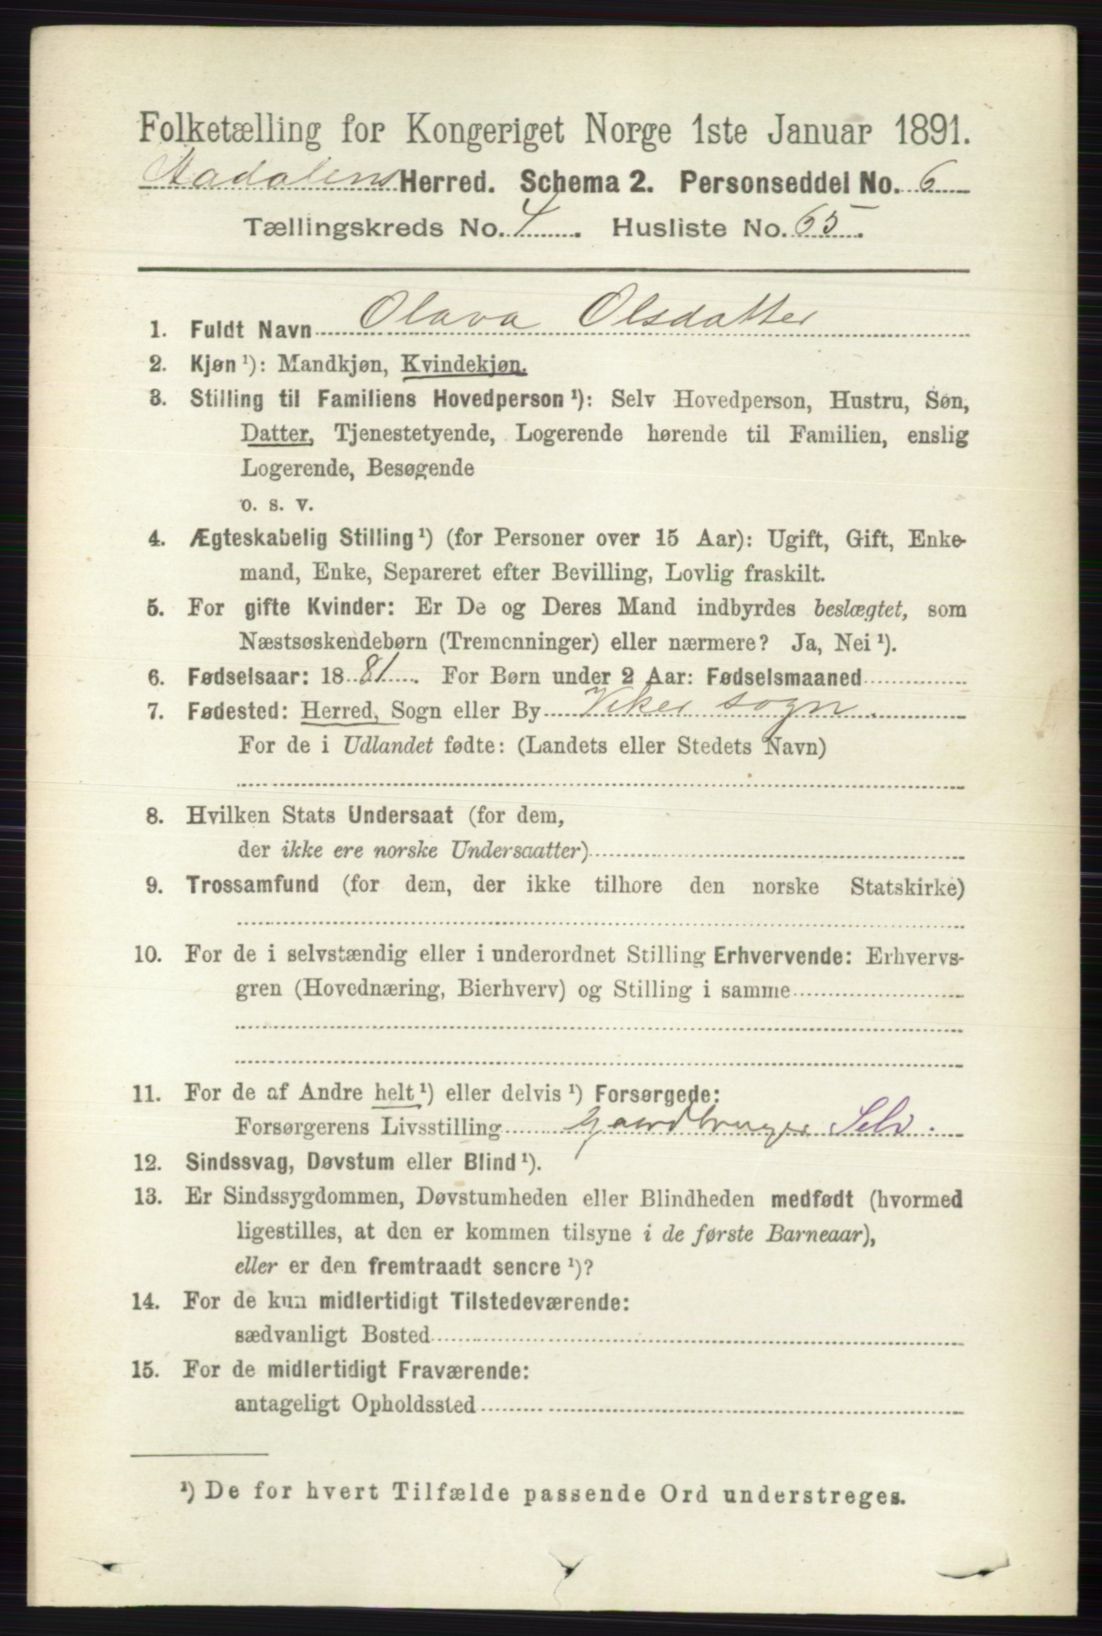 Folketælling for Kongeriget Norge 1ste Januar 1891.
Aadalens Herred. Schema 2. Personseddel No. 6
Tællingskreds No. 4. Husliste No. 65.
1. Fuldt Navn Olava Olsdatter
2. Kjøn ¹): Mandkjøn, Kvindekjøn.
3. Stilling til Familiens Hovedperson ¹): Selv Hovedperson, Hustru, Søn,
Datter, Tjenestetyende, Logerende hørende til Familien, enslig
Logerende, Besøgende
o. s. v.
4. Ægteskabelig Stilling ¹) (for Personer over 15 Aar): Ugift, Gift, Enke-
mand, Enke, Separeret efter Bevilling, Lovlig fraskilt.
5. For gifte Kvinder: Er De og Deres Mand indbyrdes beslægtet, som
Næstsøskendebørn (Tremenninger) eller nærmere? Ja, Nei ¹).
6. Fødselsaar: 1881. For Børn under 2 Aar: Fødselsmaaned
7. Fødested: Herred, Sogn eller By Viker sogn.
For de i Udlandet fødte: (Landets eller Stedets Navn)
8. Hvilken Stats Undersaat (for dem,
der ikke ere norske Undersaatter)
9. Trossamfund (for dem, der ikke tilhøre den norske Statskirke)
10. For de i selvstændig eller i underordnet Stilling Erhvervende: Erhvervs-
gren (Hovednæring, Bierhverv) og Stilling i samme
11. For de af Andre helt ¹) eller delvis ¹) Forsørgede:
Forsørgerens Livsstilling Gaardbruger Selv.
12. Sindssvag, Døvstum eller Blind ¹).
13. Er Sindssygdommen, Døvstumheden eller Blindheden medfødt (hvormed
ligestilles, at den er kommen tilsyne i de første Barneaar),
eller er den fremtraadt senere ¹)?
14. For de kun midlertidigt Tilstedeværende:
sædvanligt Bosted
15. For de midlertidigt Fraværende:
antageligt Opholdssted
¹) De for hvert Tilfælde passende Ord understreges.